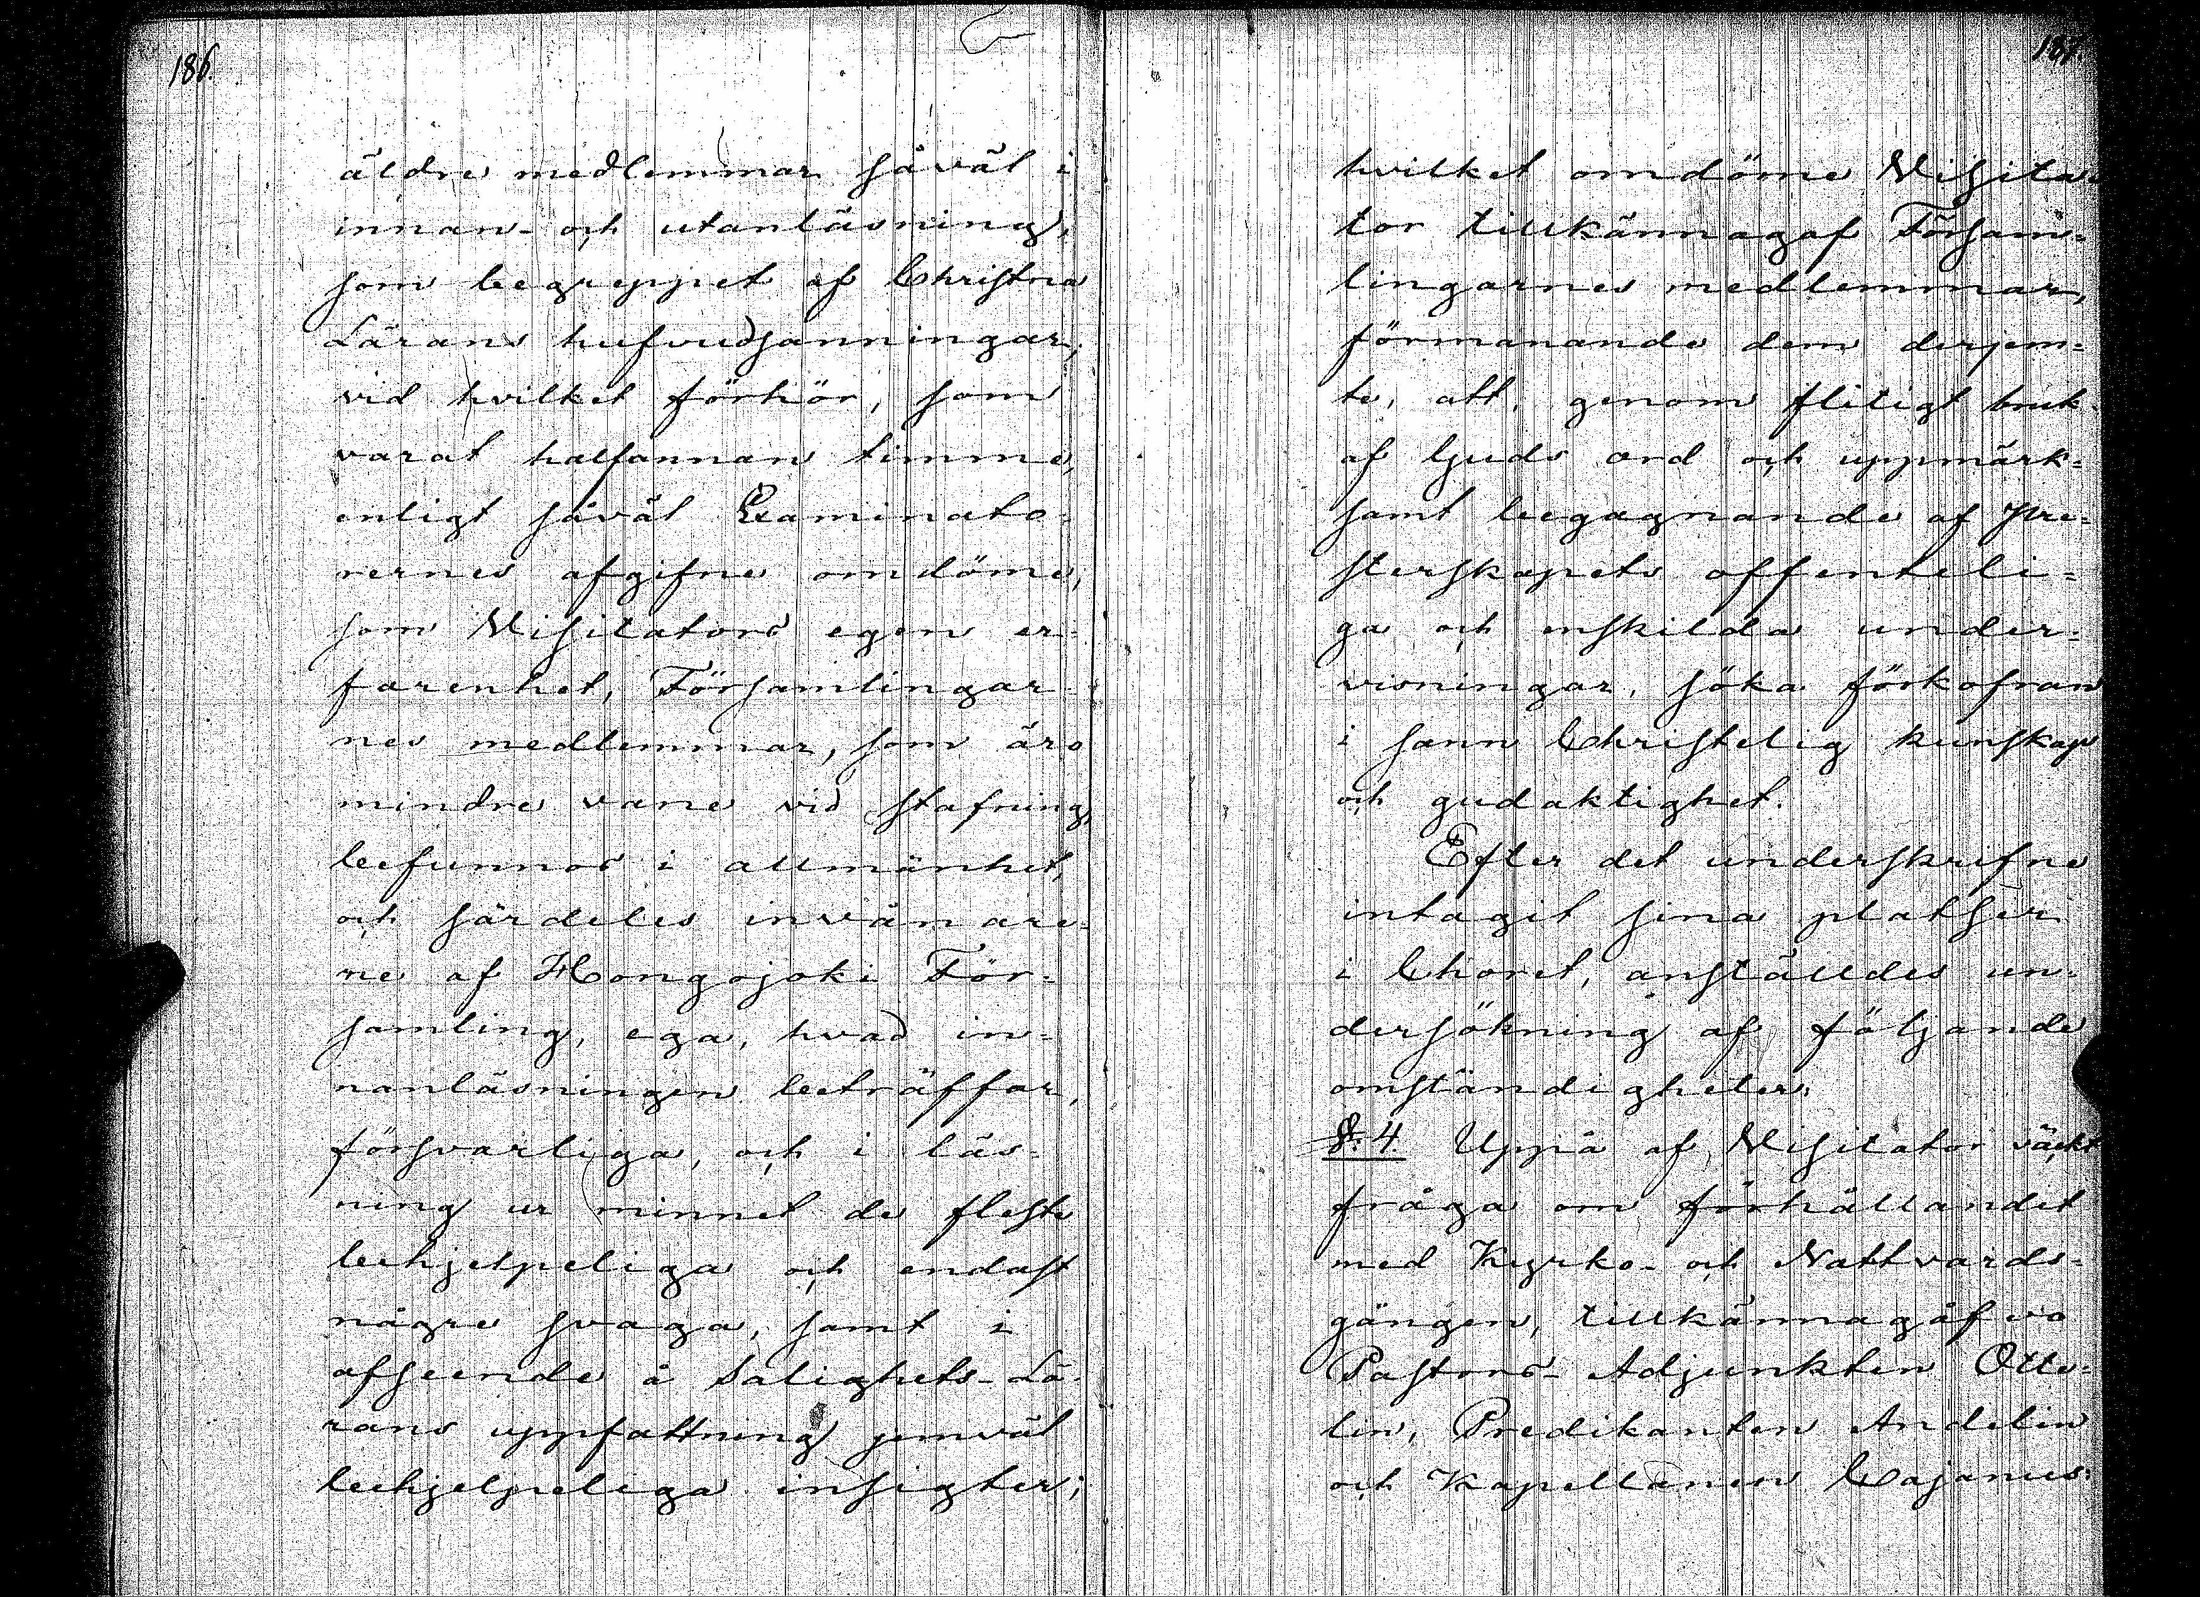 186.
äldre medlemmar såväl i
innan- och utanläsning,
som begreppet af Christna
Lärans hufvudsanningar;
vid hvilket förhör, som
varat halfannan timme,
enligt såväl Examinato-
rernes afgifne omdöme,
som Visitators egen er-
farenhet, Församlingar-
nes medlemmar, som äro
mindre vane vid stafning,
befunnos i allmänhet,
och särdeles invånare-
ne af Hongojoki För-
samling, ega, hvad in-
nanläsningen beträffar,
försvarliga, och i läs-
ning ur minnet de fleste
behjelpeliga och endast
någre svaga, samt i
afseende å Salighets-Lä-
rans uppfattning jemväl
behjelpeliga insigter;
187.
hvilket omdöme Visita-
tor tillkännagaf Försam-
lingarnes medlemmar,
förmanande dem derjem-
te, att, genom flitigt bruk
af Guds ord och uppmärk-
samt begagnande af Pre-
sterskapets offenteli-
ga och enskilda under-
visningar, söka förkofran
i sann Christelig kunskap
och gudaktighet.
Efter det underskrifne
intagit sina platser
i Choret, anställdes un-
dersökning af följande
omständigheter:
§. 4. Uppå af Visitator väckt
fråga om förhållandet
med Kyrko- och Nattvards-
gången, tillkännagåfvo
Pastors-Adjunkten Otte-
lin, Predikanten Andelin
och Kapellanen Cajanus